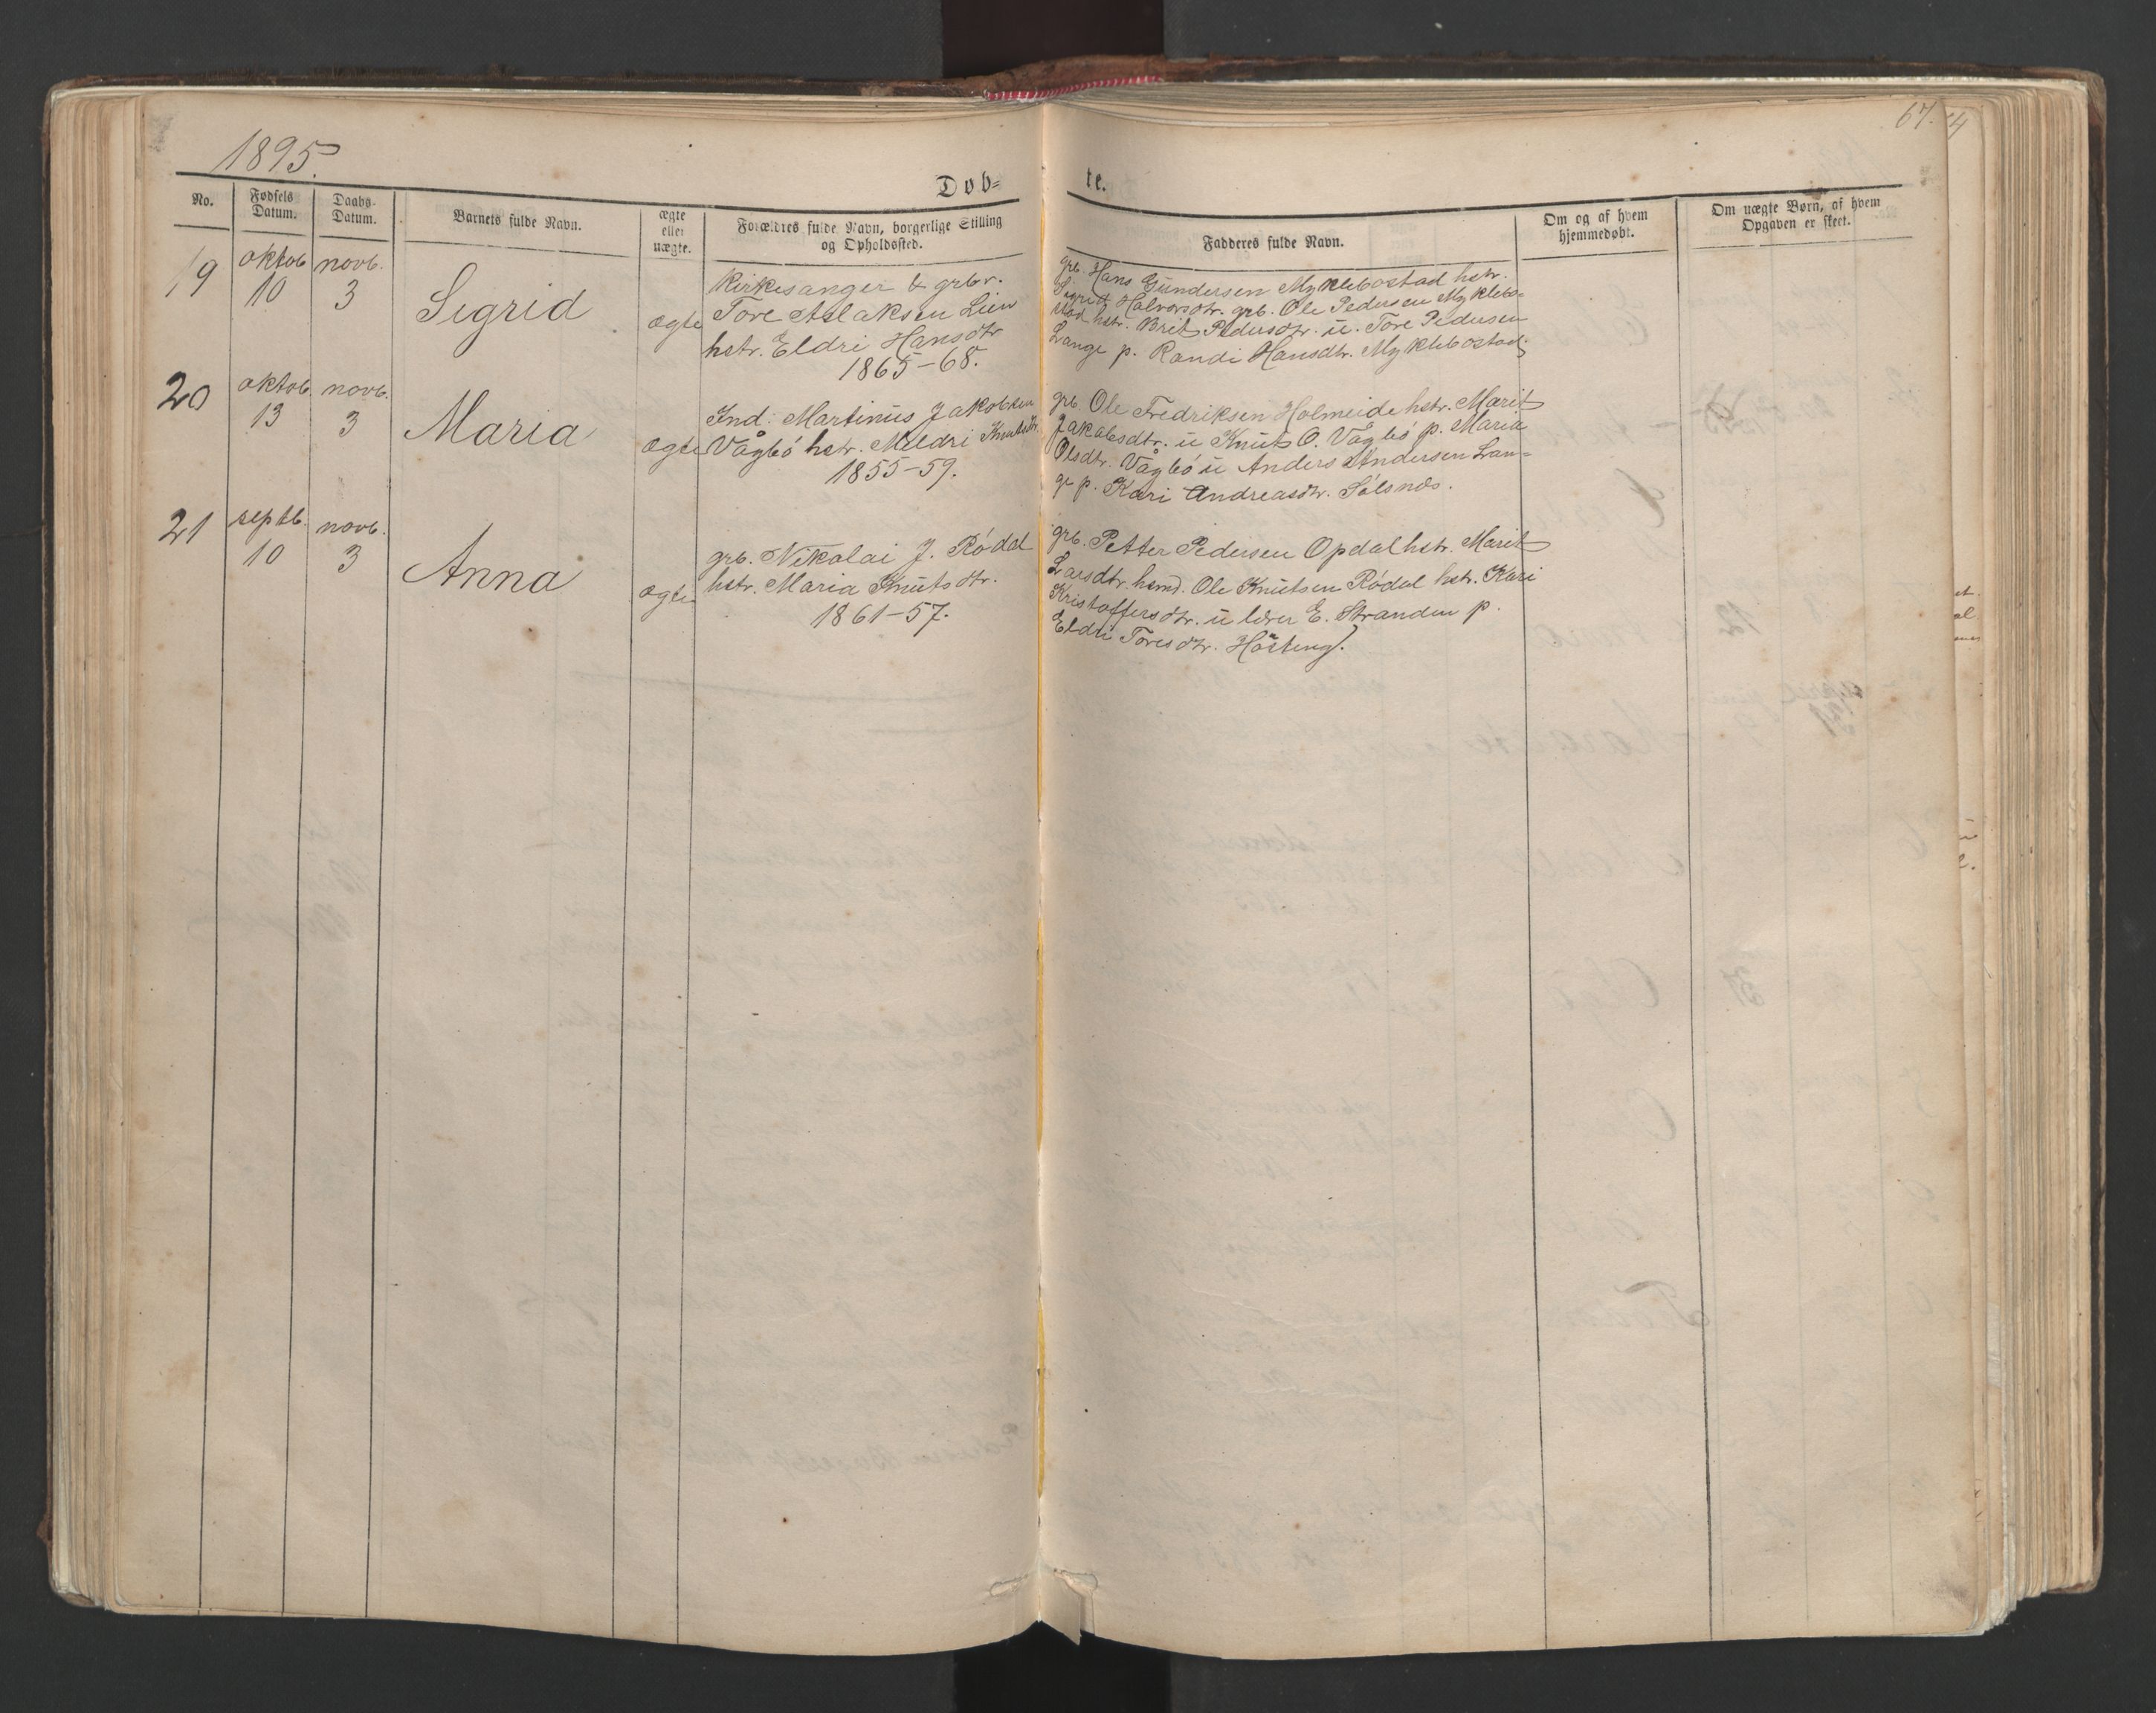 1895.
Døb-
te.
67.
No.
Fødsels Datum.
Daabs-Datum.
Barnets fulde Navn.
ægte eller uægte.
Forældres fulde Navn, borgerlige Stilling og Opholdssted.
Fadderes fulde Navn.
Om og af hvem hjemmedøbt.
Om uægte Børn, af hvem Opgaven er skeet.
19
oktob. 10
novb. 3
Sigrid
ægte
Kirkesanger & grbr.
Tore Aslaksen Lien
hstr. Eldri Hansdtr
1865-68.
grb. Hans Gundersen Myklebostad hstr.
Sigrid Halvorsdtr. grb. Ole Pedersen Myklebo-
stad hstr. Brit Pedersdtr. u. Tore Pedersen
Lange p. Randi Hansdtr. Myklebostad
20
oktob. 13
novb. 3
Maria
ægte
Ind. Martinus Jakobsen
Vågbó hstr. Meldri Knutsdtr.
1855-59.
grb. Ole Fredriksen Holmeide hstr. Marit
Jakobsdtr. u Knut O. Vågbó p. Maria
Olsdtr. Vågbó u Anders Andersen Lan-
ge p. Kari Andreasdtr. Sólsnæs.
21
septb. 10
novb. 3
Anna
ægte
grb. Nikolai J. Ródal
hstr. Maria Knutsdtr.
1861-57.
grb. Petter Pedersen Opdal hstr. Marit
Larsdtr. hsmd. Ole Knutsen Ródal hstr. Kari
Kristoffersdtr. u Iver E. Stranden p.
Eldri Toresdtr. Hästeng.